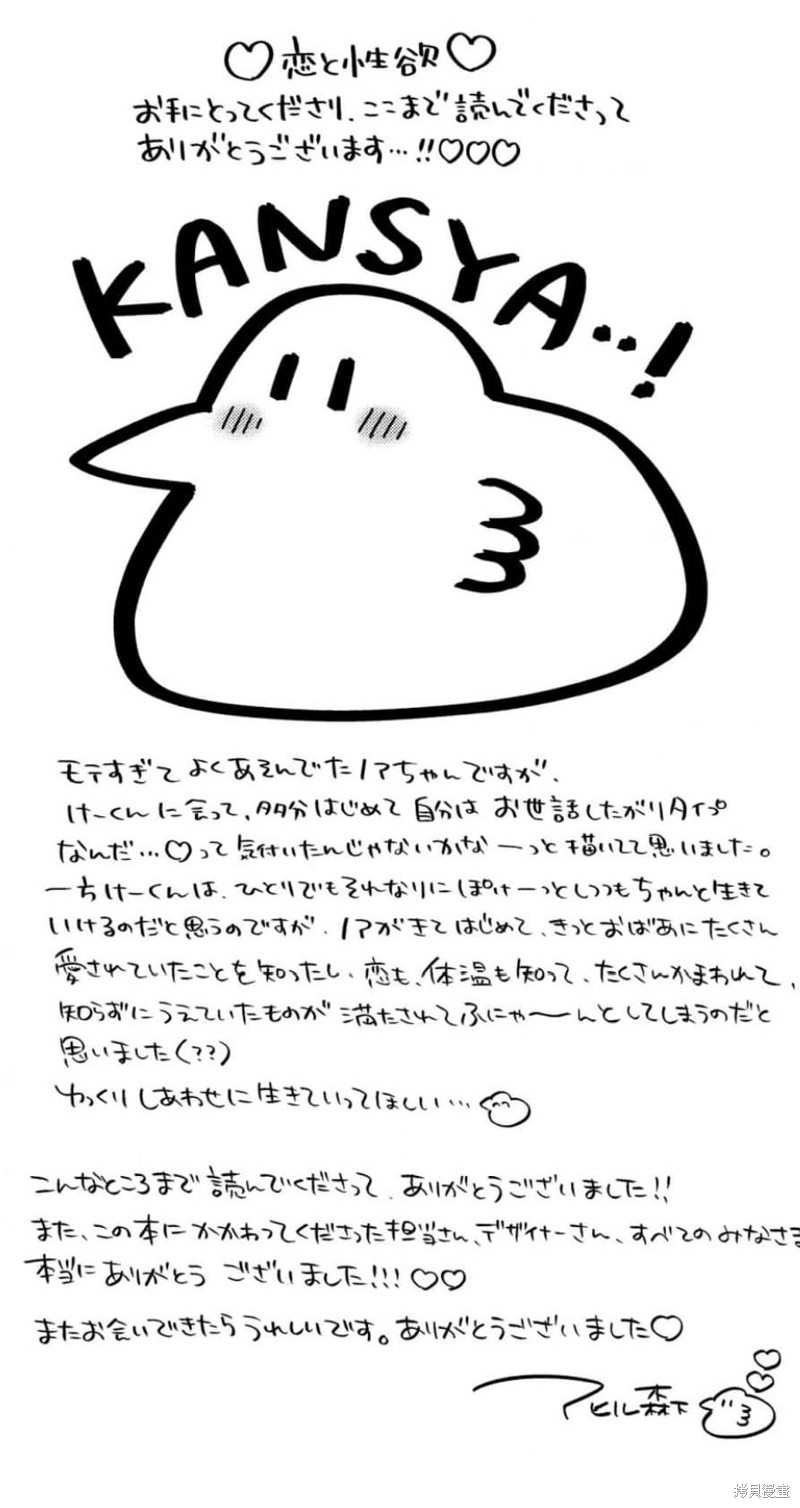 ♡恋と性欲♡
お手にとってくださり、ここまで読んでくださって
ありがとうございます…!!♡♡♡
KANSYA..!
モテすぎてよくあそんでたノアちゃんですが、
けーくんに会って、多分はじめて自分はお世話したがりタイプ
なんだ…♡って気付いたんじゃないかなーっと描いてて思いました。
一方けーくんは、ひとりでもそれなりにぽけーっとしつつもちゃんと生きて
いけるのだと思うのですが、ノアがきてはじめて、きっとおばあにたくさん
愛されていたことを知ったし、恋も、体温も知って、たくさんかまわれて、
知らずにうえていたものが満たされてふにゃ〜んとしてしまうのだと
思いました(??)
ゆっくりしあわせに生きていってほしい…
こんなところまで読んでくださって、ありがとうございました!!
また、この本にかかわってくださった担当さん、デザイナーさん、すべてのみなさま
本当にありがとうございました!!!♡♡
またお会いできたらうれしいです。ありがとうございました♡
アヒル森下
拷貝漫畫